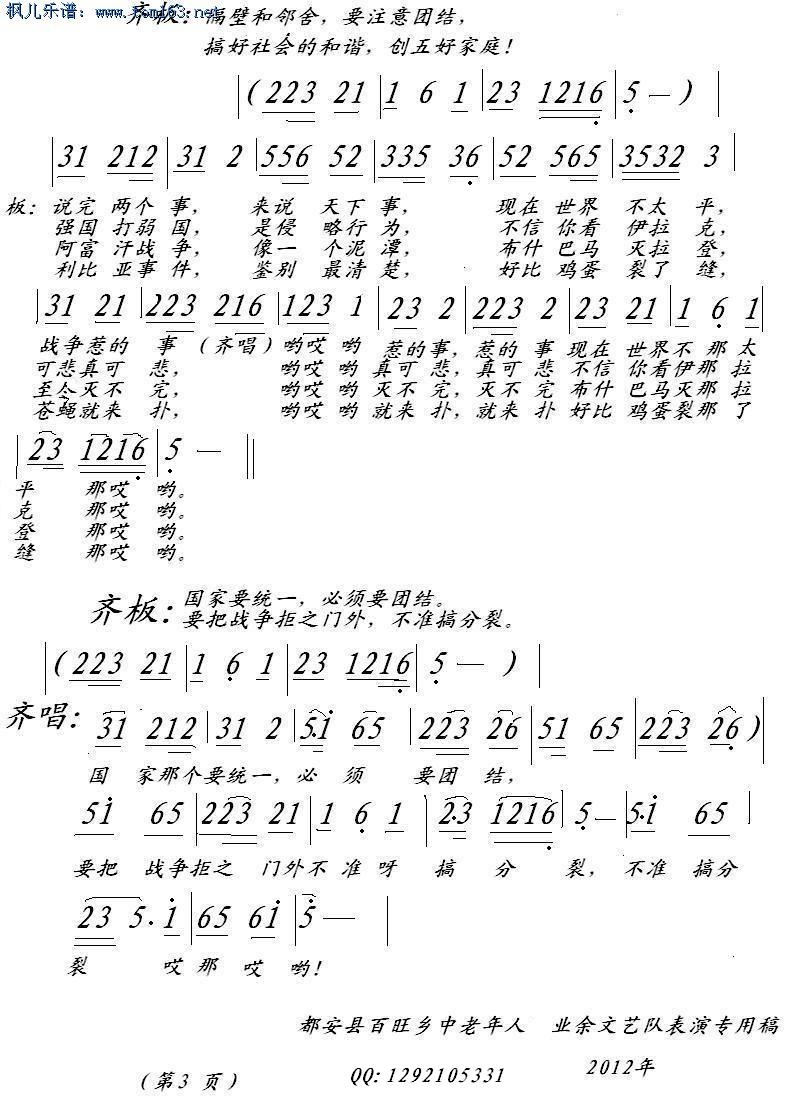 枫儿乐谱: www.fomt63.net
齐板: 隔壁和邻舍，要注意团结，
搞好社会的和谐，创五好家庭！
(223 21 | 1 6 1 | 23 1216 | 5 — )
31 212 | 31 2 | 556 52 | 335 36 | 52 565 | 3532 3
板: 说完 两个 事， 来说 天下 事， 现在 世界 不太 平，
强国 打弱 国， 是侵 略行 为， 不信 你看 伊拉 克，
阿富 汗战 争， 像一 个泥 潭， 布什 巴马 灭拉 登，
利比 亚事 件， 鉴别 最清 楚， 好比 鸡蛋 裂了 缝，
31 21 | 223 216 | 123 1 | 23 2 | 223 2 | 23 21 | 1 6 1
战争惹的 事 (齐唱) 哟哎 哟 惹的事，惹的 事 现在 世界不 那太
可悲真可 悲， 哟哎 哟 真可 悲，真可 悲 不信 你看伊那 拉
至今灭不 完， 哟哎 哟 灭不 完，灭不 完 布什 巴马灭那 拉
苍蝇就来 扑， 哟哎 哟 就来 扑，就来 扑 好比 鸡蛋裂那 了
23 1216 | 5 —
平 那哎 哟。
克 那哎 哟。
登 那哎 哟。
缝 那哎 哟。
齐板: 国家要统一，必须要团结。
要把战争拒之门外，不准搞分裂。
(223 21 | 1 6 1 | 23 1216 | 5 — )
齐唱: 31 212 | 31 2 | 5.1 65 | 223 26 | 51 65 | 223 26 )
国 家那个要统一，必 须 要团 结，
51 65 | 223 21 | 1 6 1 | 2.3 1216 | 5 - | 5.1 65
要把 战争拒之 门外不 准呀 搞 分 裂，不准 搞分
23 5. 1 | 65 61 | 5 —
裂 哎那 哎 哟！
都安县百旺乡中老年人 业余文艺队表演专用稿
(第3 页) QQ: 1292105331 2012年